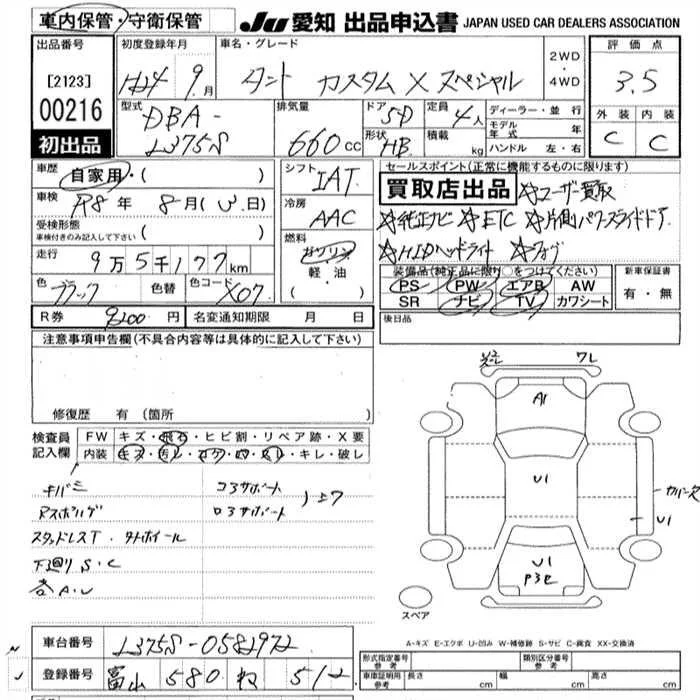 車内保管・守衛保管
JU 愛知 出品申込書 JAPAN USED CAR DEALERS ASSOCIATION
出品番号
[2123]
00216
初出品
初度登録年月
H24年 9月
車名・グレード
タント カスタム X スペシャル
2WD
・
4WD
評価点
3.5
外装 内装
C C
型式
DBA-
L375S
排気量
660 cc
ドア 5D
形状 HB
定員 4人
積載 kg
ディーラー・並行
モデル年式 年
ハンドル 左・右
車歴
自家用・( )
車検 R8年 8月( 日)
受検形態
車検付きのみ記入して下さい ( )
走行
9万5千177km
色 ブラック 色替 色コード X07
シフト
IAT
冷房
AAC
燃料
ガソリン
軽・油
・( )
セールスポイント(正常に機能するものに限ります)
買取店出品 ☆ユーザー買取
☆純正ナビ ☆ETC ☆片側パワースライドドア
☆HIDヘッドライト ☆フォグ
装備品(純正品に限り○をつけてください)
PS PW エアB AW
SR ナビ TV カワシート
新車保証書
有・無
R券 9200円 名変通知期限 月 日
後日品
注意事項申告欄(不具合内容等は具体的に記入して下さい)
修復歴 有 (箇所
検査員
記入欄
FW キズ・飛石・ヒビ割・リペア跡・X要
内装 キズ・汚レ・コゲ・穴・スレ・キレ・破レ
キバミ
コアサポート
ロアサポート
スタッドレスT・タイホイール
下廻り S・C
各 A・U
ワレ
A1
U1
U1
P3
U1
スペア
A-キズ E-エクボ U-凹み W-補修跡 S-サビ C-腐食 XX-交換済
車台番号 L375S-0582972
登録番号 富山 580 ね 512
形式指定番号
参考
類別区分番号
参考
車庫証明用
参考
長さ cm 幅 cm 高さ cm